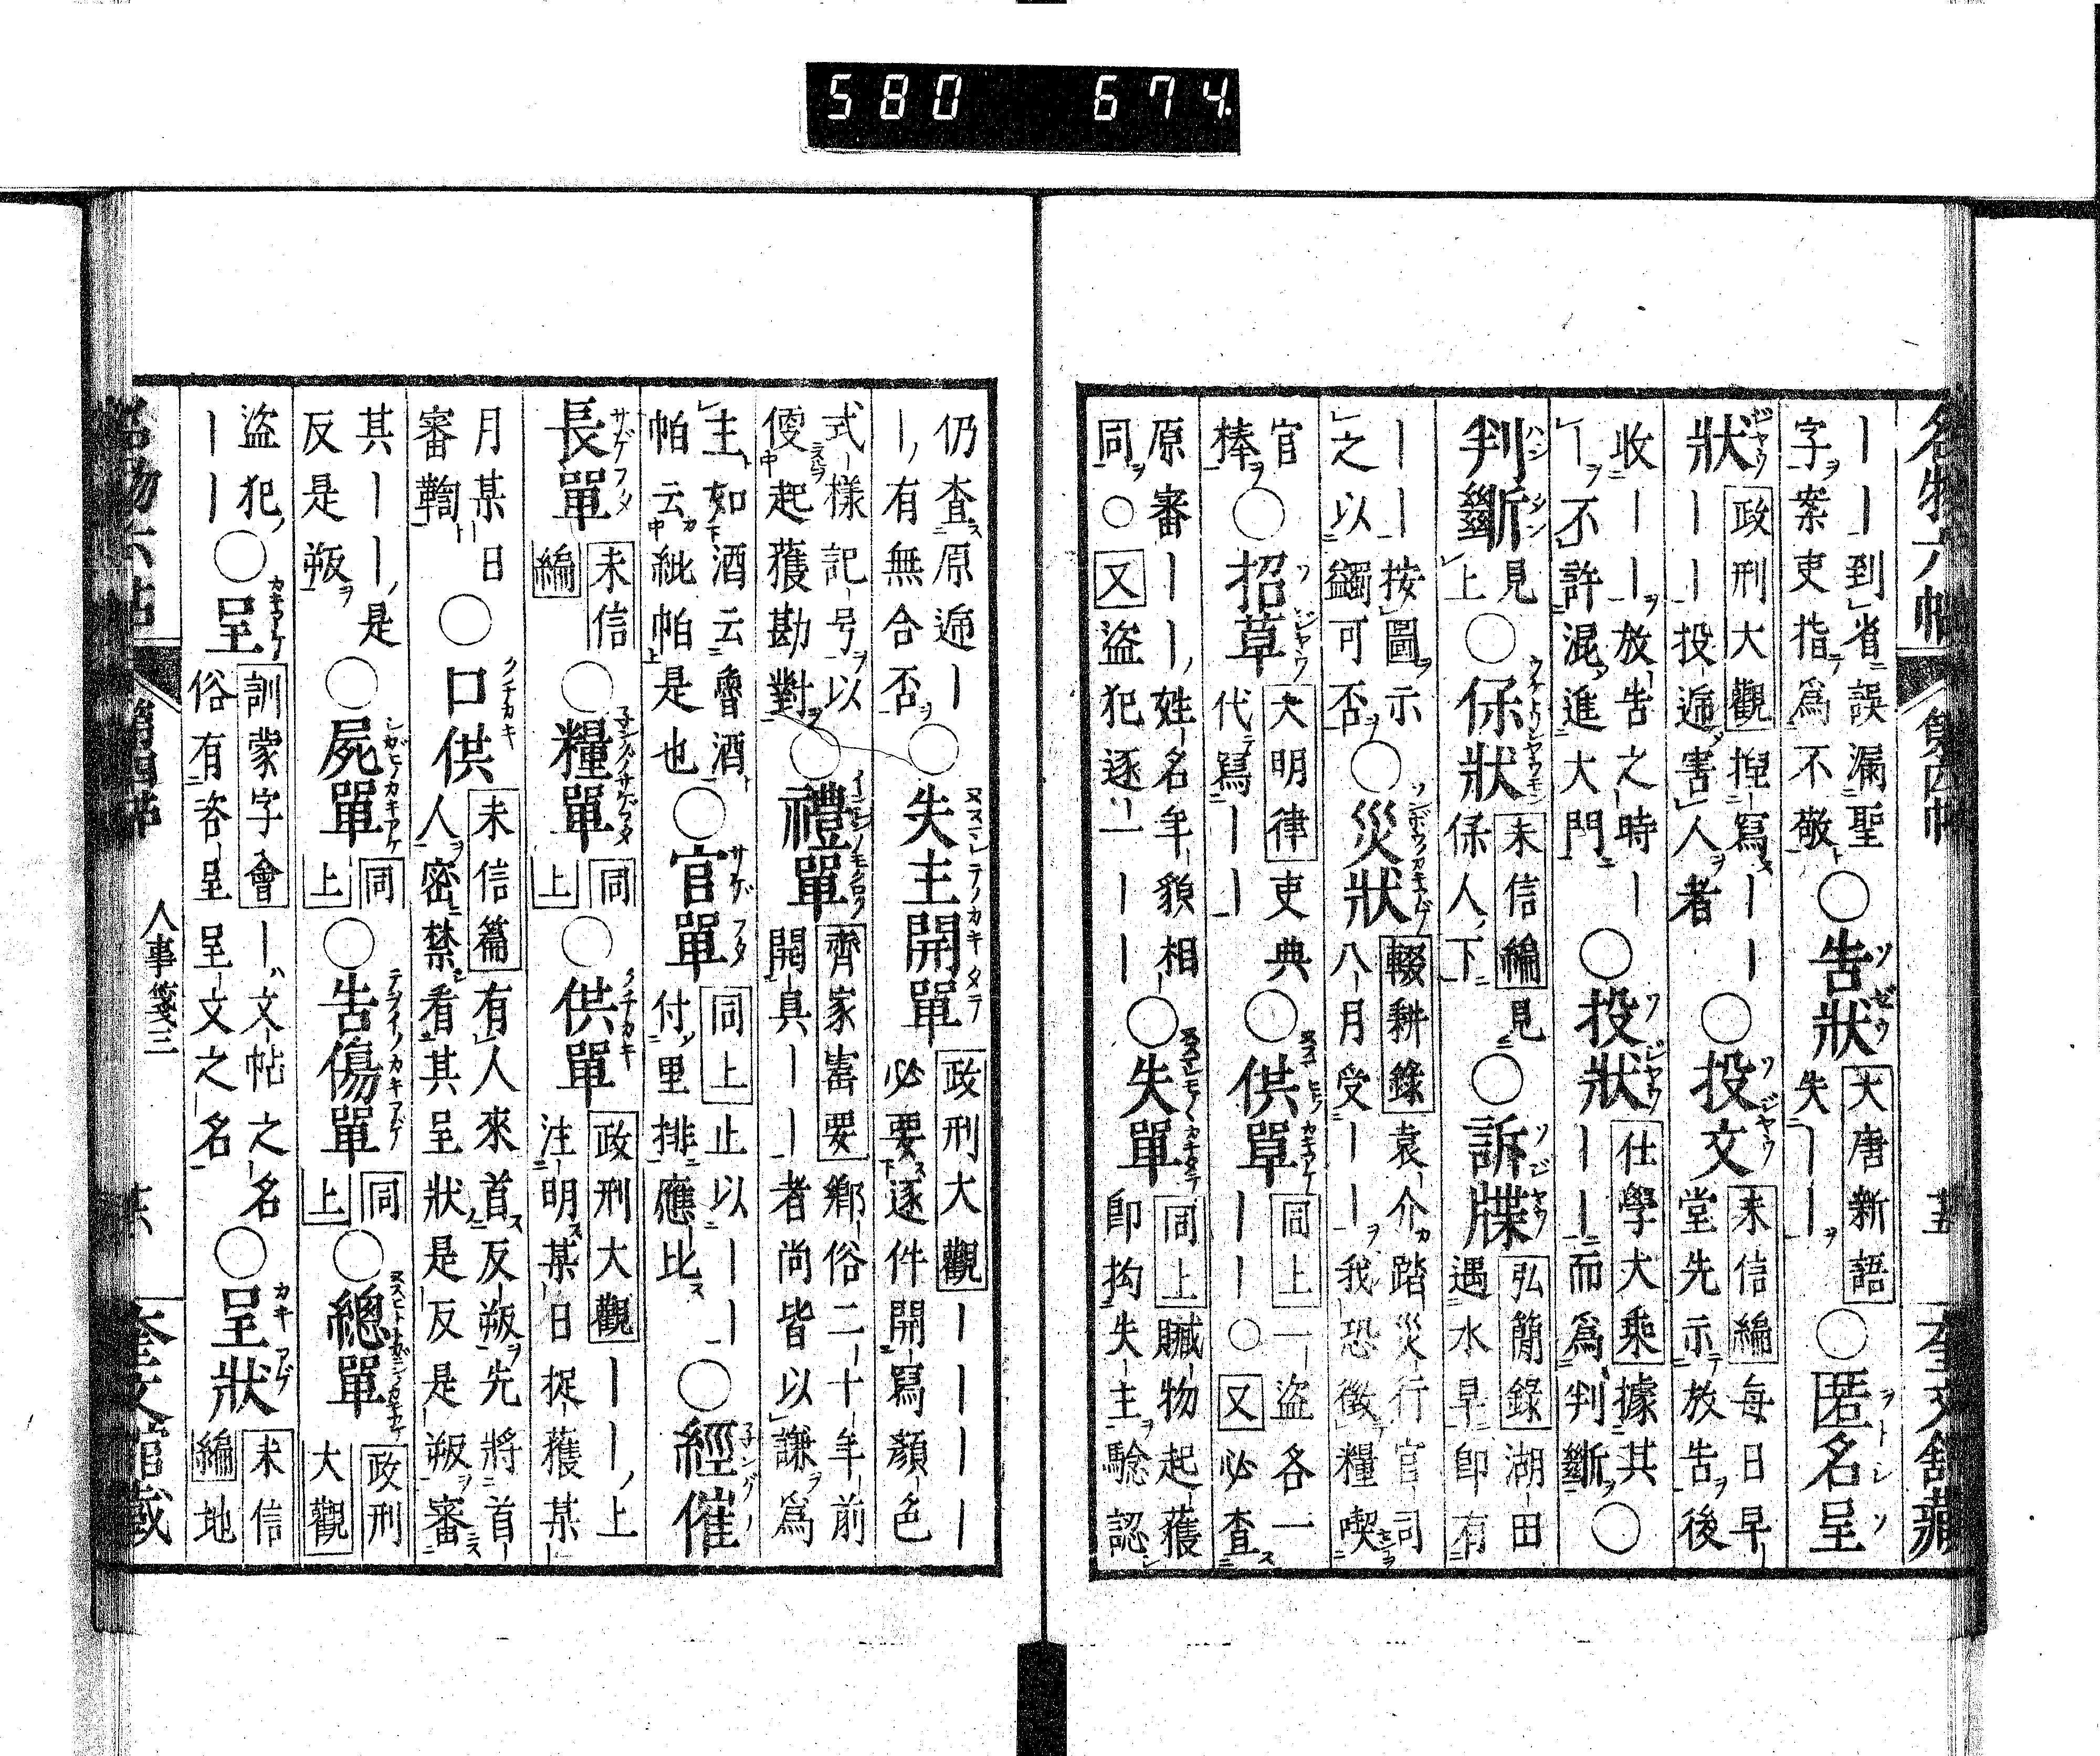 580 674.
名物六帖 第四帖 十五 奎文舘藏
――到省誤漏聖
字案吏指為不敬○告狀 大唐新語 失――○匿名呈
狀 政刑大觀 捏寫――
――投遞害人者○投文 未信編 每日早
堂先示放告後
收――放告之時―
―不許混進大門○投狀 仕學大乘 據其
――而為判斷○
判斷 見上○保狀 未信編 見
保人下○訴牒 弘簡錄 湖田
遇水旱即有
――按圖示
之以蠲可否○災狀 輟耕錄 袁介踏災行官司
八月受――我恐徵糧喫
官
棒○招草 大明律 吏典
代寫――○供單 同上 一盜各一
――○又必查
原審――姓名年貌相
同○又盜犯逐一――○失單 同上 贓物起獲
即拘失主驗認
仍査原遞―
―有無合否○失主開單 政刑大觀 ――――
必要逐件開寫顏色
式樣記号以
便起獲勘對○禮單 齊家寶要 鄉俗二十年前
開具――者尚皆以謙為
主如酒云魯酒
帕云紕帕是也○官單 同上 止以――
付里排應比○經催
長單 未信編○糧單 同上○供單 政刑大觀 ――上
注明某日捉獲某
月某日
審鞫○口供 未信篇 有人來首反叛先將首
人密禁看其呈狀是反是叛審
其――是
反是叛○屍單 同上○告傷單 同上○總單 政刑大觀
盜犯○呈 訓蒙字會 ―文帖之名
――俗有咨呈呈文之名○呈狀 未信編 地
名物六帖 第四帖 人事箋三 奎文舘藏